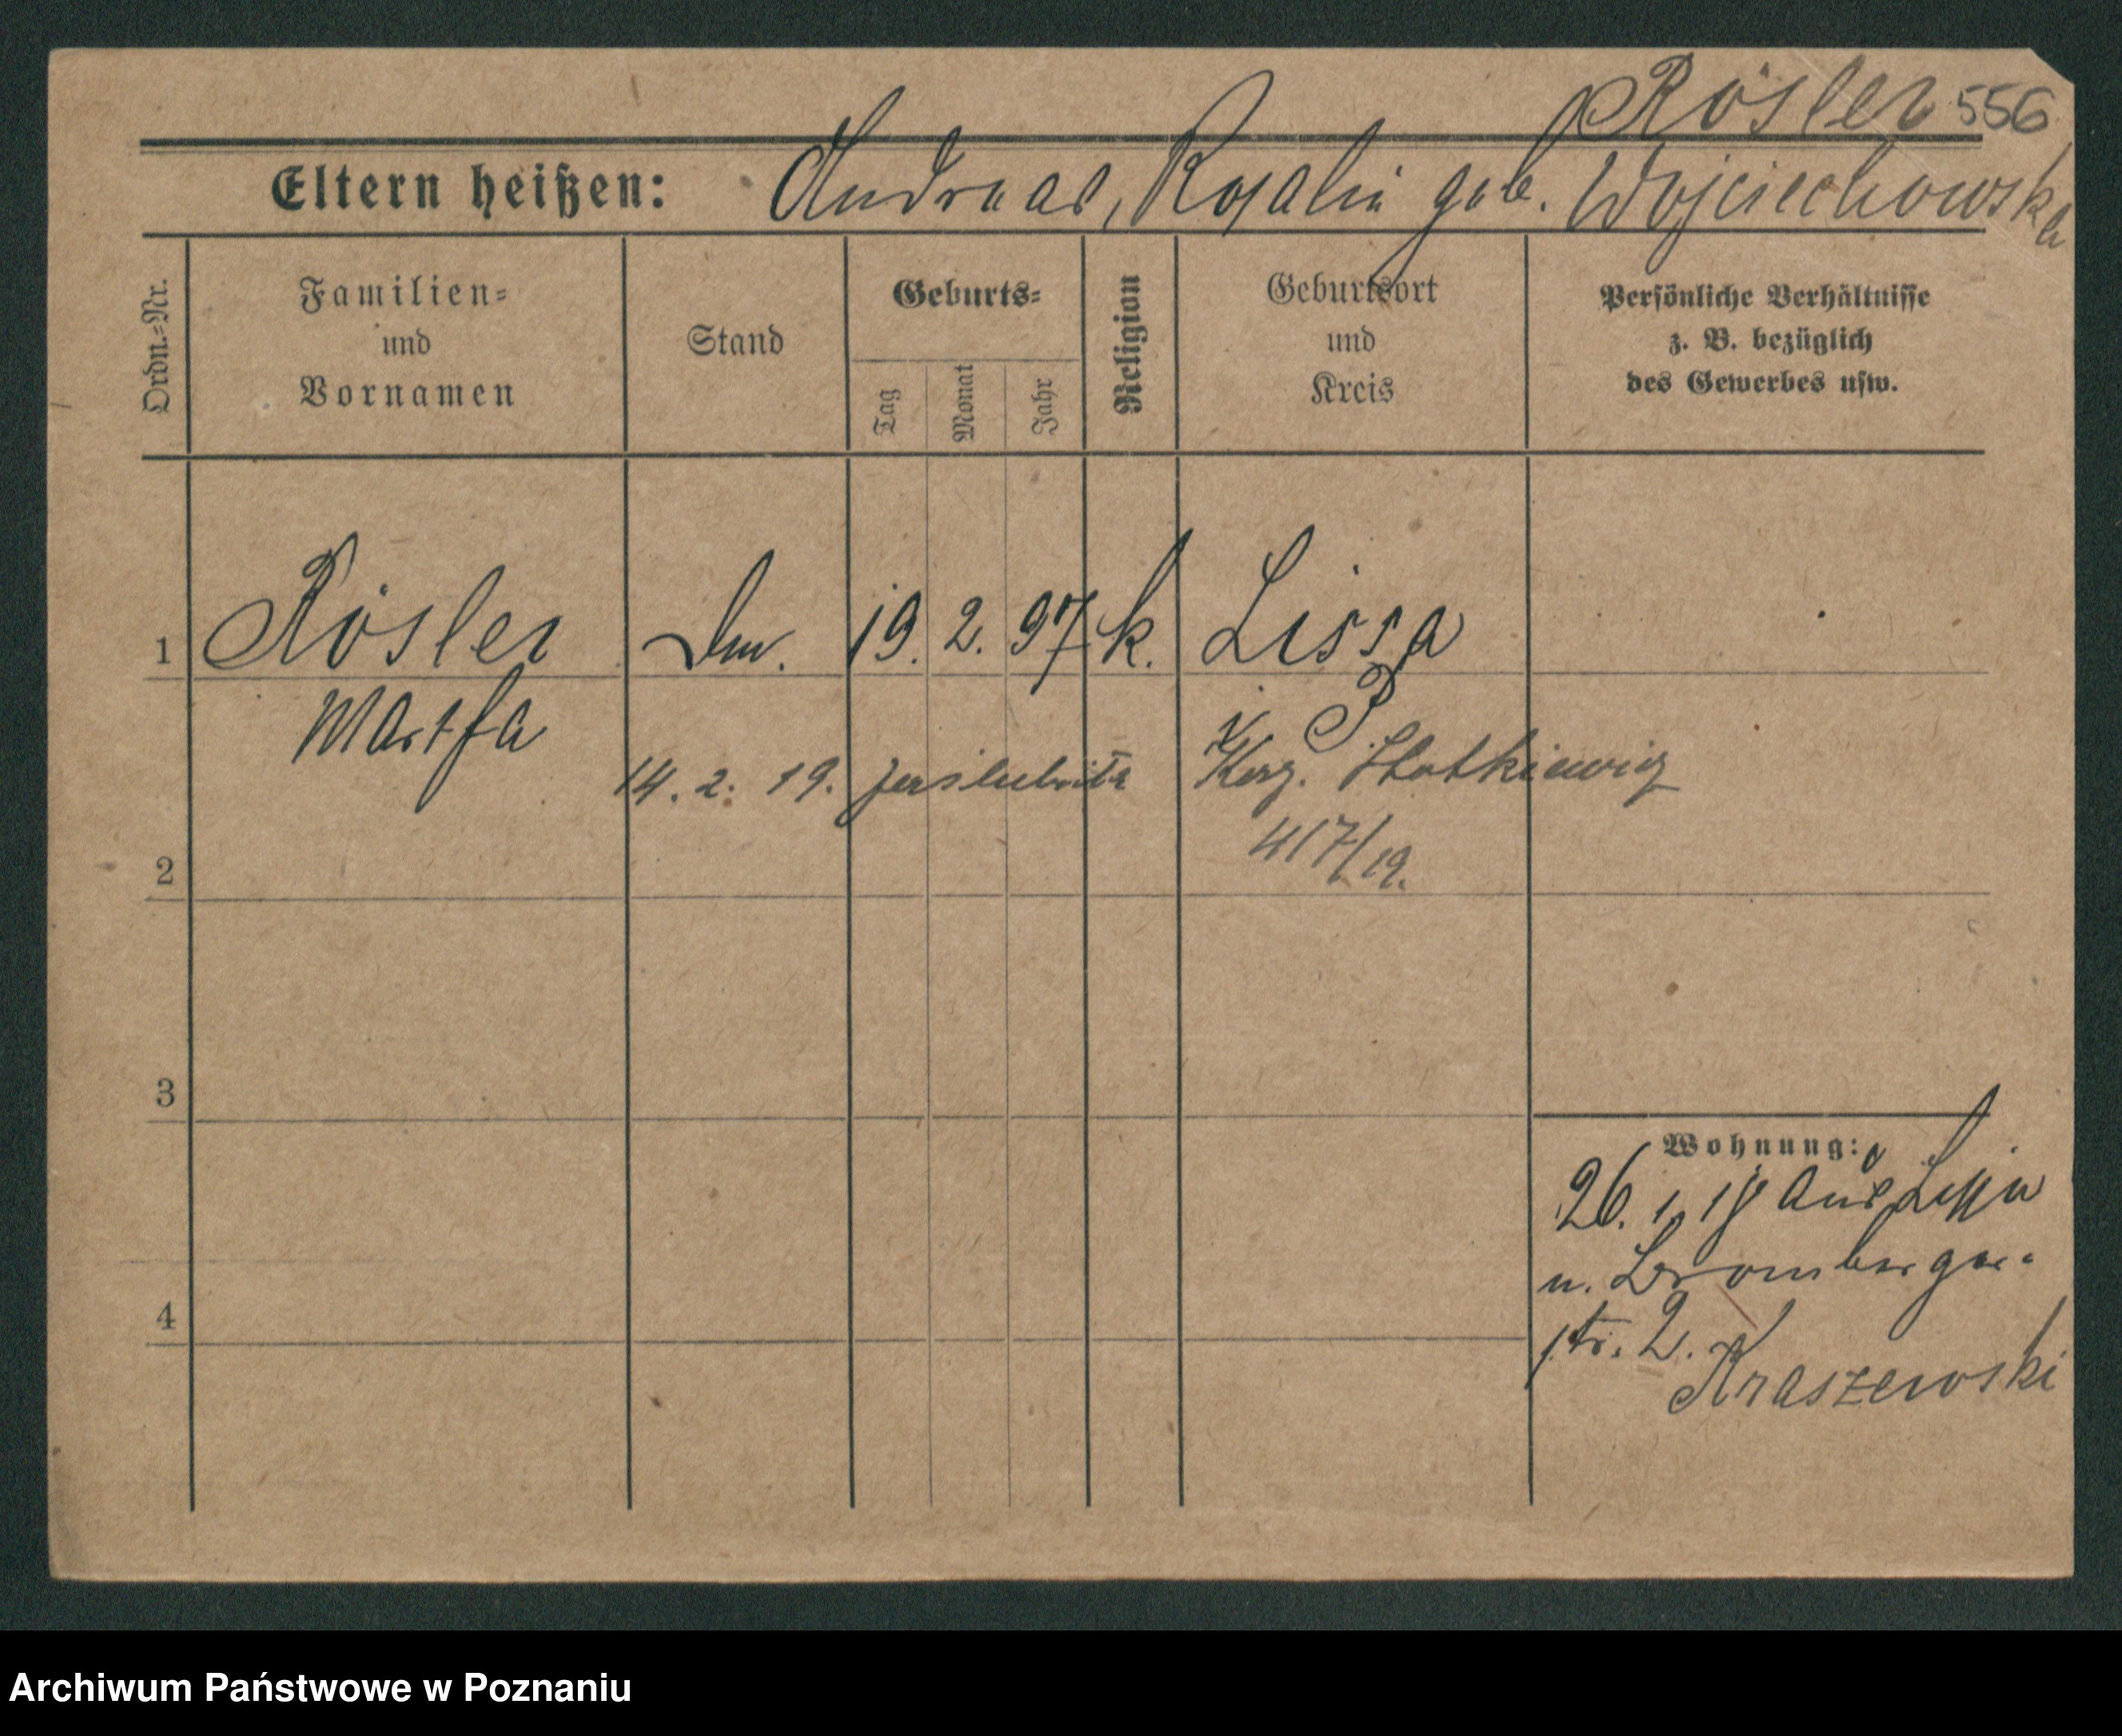 Rösler 556
Eltern heißen: Andreas, Rosalie geb. Wojciechowska
Ordn.-Nr.
Familien-
und
Vornamen
Stand
Geburts-
Tag
Monat
Jahr
Religion
Geburtsort
und
Kreis
Persönliche Verhältnisse
z. B. bezüglich
des Gewerbes usw.
1 Rösler 19. 2. 97 k. Lissa
P
Martha
14. 2. 19.
417/19.
2
3
4
Wohnung:
26. 1. 18 aus Lissa
n. Bromberger-
str. 2.
Kraszewski
Archiwum Państwowe w Poznaniu